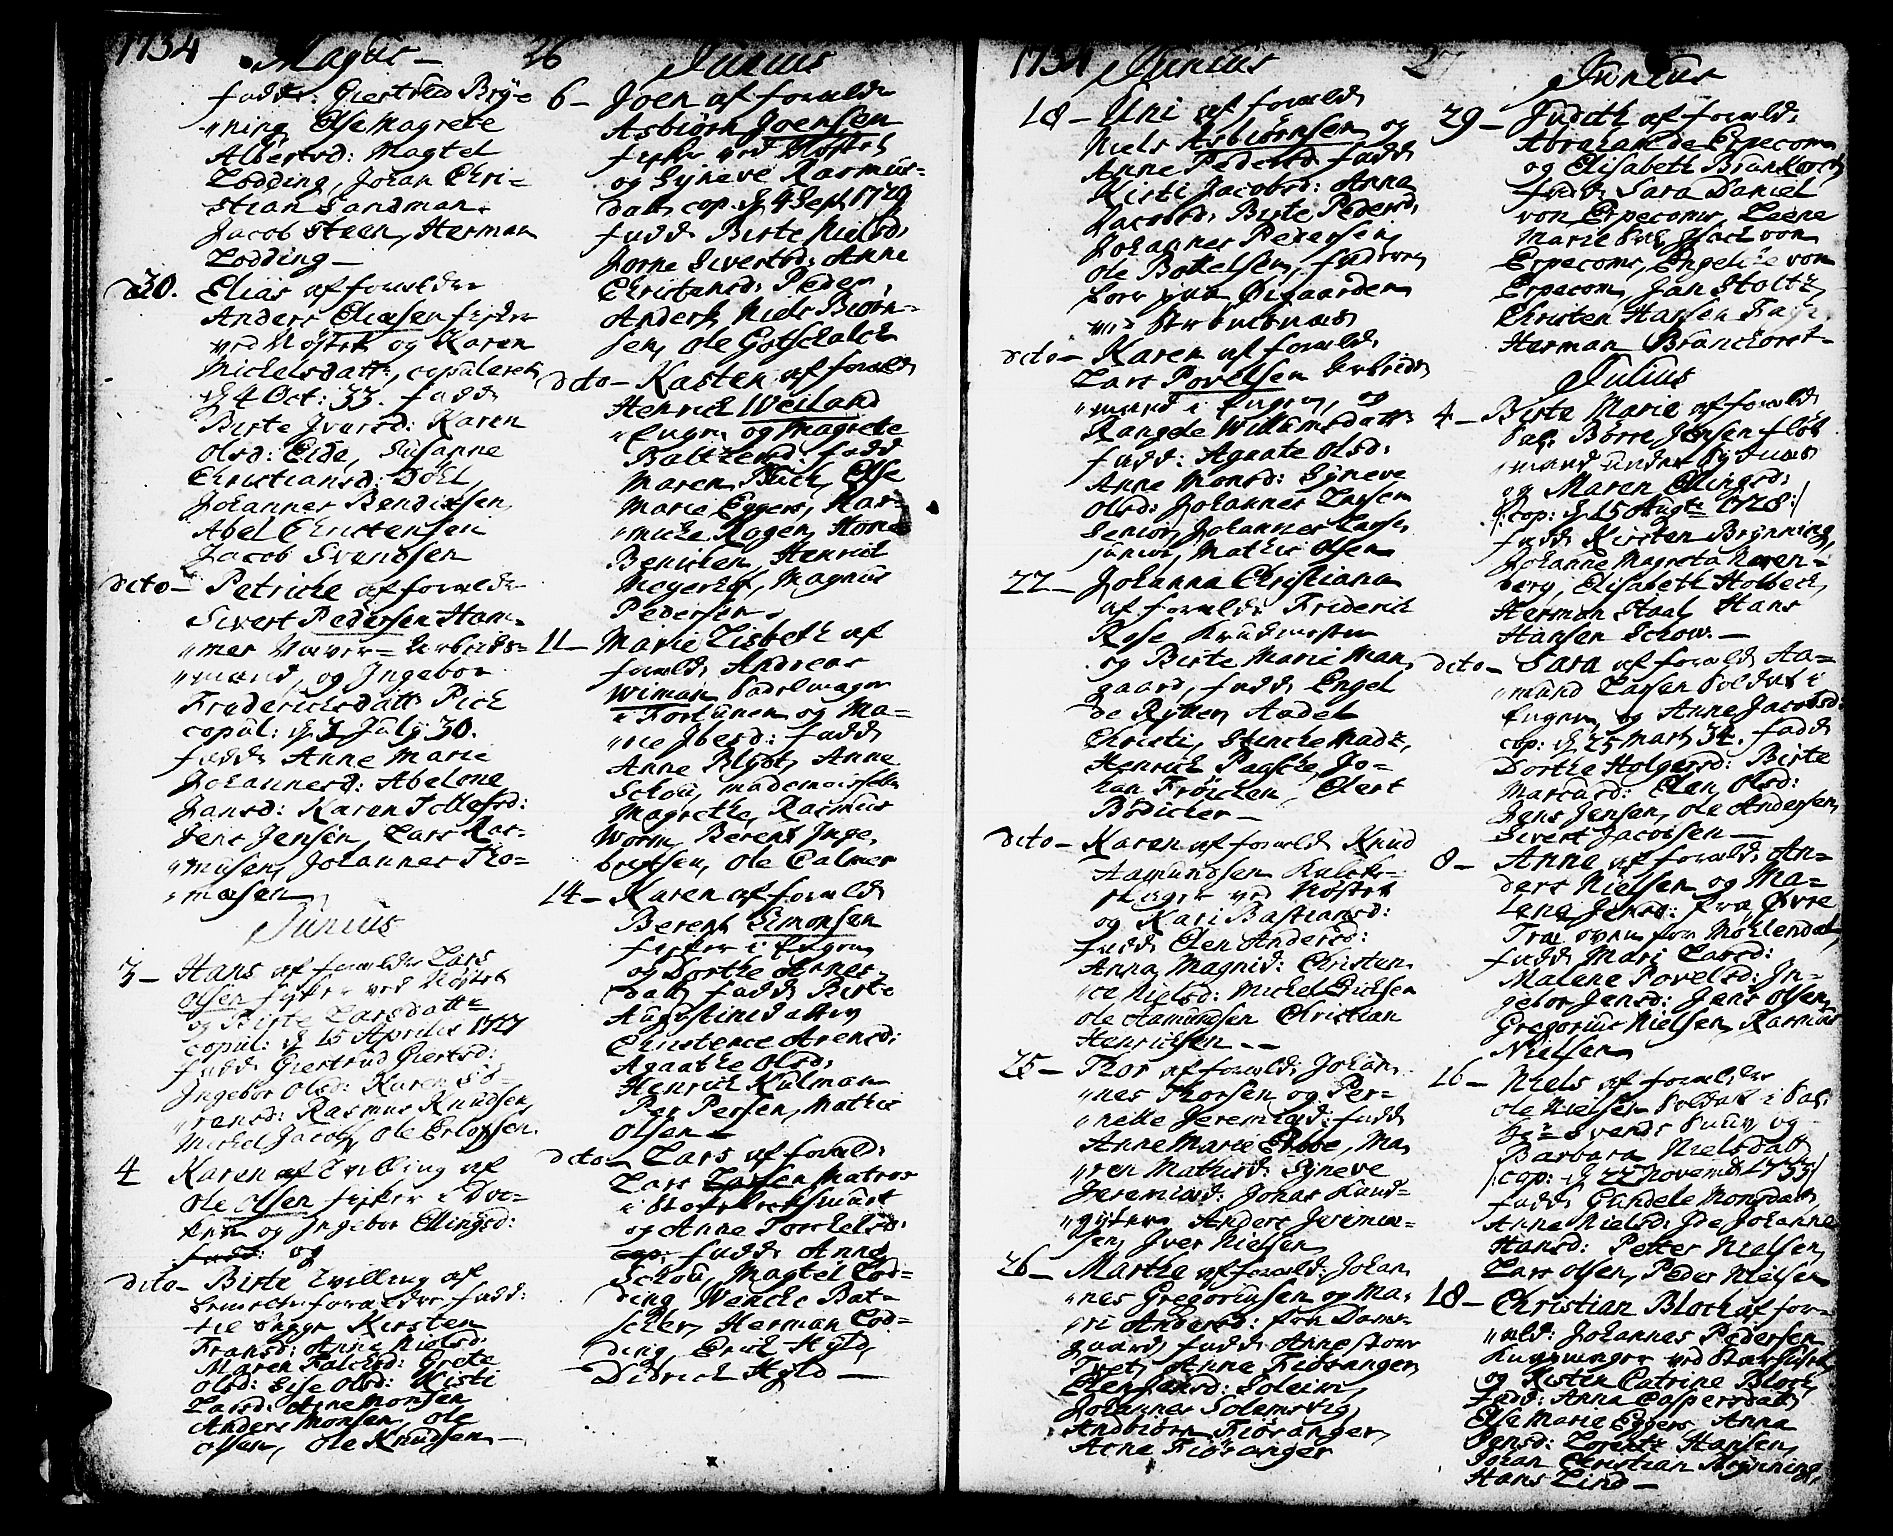 1734 Majus — 26
fadd: Giertrud Brÿ=
ning, Else Magrete
Albertsd: Magtel
Lodding, Johan Chri=
stian Sandman,
Jacob Steen, Herman
Lodding —
30. Elias af forældre
Anders Eliæsen fisker
ved Nøstet og Karen
Michelsdatt:, copuleret
d 4 Oct: 33. fadd:
Birte Jvarsd: Karen
Olsd: Eide, Susanne
Christiansd: Döhl,
Johannes Bendixsen,
Abel Christensen
Jacob Svendsen
dito — Petriche af forældre
Sivert Pedersen Ham=
mer Arbeids=
mand, og Ingebor
Frederichsdatt: Pich
copul: d 3 July 30.
fadd: Anne Marie
Johannesd: Abelone
Hansd: Karen Tollefsd:
Jens Jensen, Lars Ras=
musen, Johannes Tho=
masen
Junius
3 — Hans af forældre Lars
Olsen fisker ved Nøstet
og Birte Larsdatt:
copul: d 15 Aprilis 1727
fadd: Giertrud Giertsd:
Ingebor Olsd: Karen Sö=
rensd: Rasmus Knudsen,
Michel Jacobs, Ole Erlofsen.
4 Karen af Tvilling af
Ole Olsen fisker i
og Jngebor Ellingsd:
fadd: og
dito — Birte Tvilling af
bemelte forældre fadd:
til begge Kirsten
Fransd: Anna Nielsd:
Maren Falchsd: Grete
Olsd: Sise Olsd: Kisti
Larsd: Arne Monsen
Anders Monsen, Ole
Olsen, Ole Knudsen —
Junius
6 — Joen af forældre
Asbiörn Joensen
fisker ved Nøstet
og Syneve Rasmus=
datt: cop. d 4 Sept 1729
fadd: Birte Nielsd:
Jorne Sivertsd: Anne
Christensd: Peder
Anders, Niels Biörn=
sen, Ole Gotschalch
dito — Karsten af foræld:
Henrich Weiland
i Engen og Magrete
Baltzersd: fadd:
Maren Buch, Else
Marie Eggers, Har=
miche Kogen,
Benichen, Henrich
Meyerhof, Magnus
Pedersen.
11 — Marie Lisbeth af
foræld: Andreas
Wiman Sadelmager
i Fortunen og Ma=
rie Jbersd: fadd:
Anne Blÿdt, Anne
Schou, mademoiselle
Magrethe, Rasmus
Worm, Berent Inge=
bretsen, Ole Calmer
14 — Karen af foræld:
Berent Simonsen
fisker i Engen
og Dorthe Arnes=
datt: fadd: Birte
Augustinidatter
Christence Arensd:
Agaathe Olsd:
Henrich Kulman
Per Persen, Mathis
Olsen —
dito — Lars af foræld:
Lars Larsen Matros
i
og Anne Torchelsd:
cop: fadd: Anne
Schou, Magtel Lod=
ding, Wenche Bat=
scher, Herman Lod=
ding, Erich Hyld,
Didrich Hyld —
1734 Junius 27
18 — Uni af foræld:
Niels Asbiörnsen og
Anne Pedersd. fadd:
Kisti Jacobsd: Anna
Jacobsd: Birte Pedersd:
Johannes Pedersen,
Ole Bottelsen, faderen
boer paa Øigaarden
ved
dito — Karen af foræld:
Lars Povelsen Arbeids
mand i Engen, og
Rangele Willumsdatt:
fadd: Agaate Olsd:
Anne Monsd: Syneve
Olsd: Johannes Larsen
Senior, Johannes Larsen
junior, Mathis Olsen
22 — Johanna Christiana
af foræld: Friderich
Rose Krudmester
og Birte Marie Man=
gaard, fadd: Engel
de Rytter, Aadel
Christi, Stinche Madz,
Henrich Paasche, Jo=
han Fröichen, Elert
Bödicher —
dito — Karen af foræld: Knud
Aamundsen Kulek=
ved Nøstet
og Kari Bastiansd:
fadd: Elen Andersd:
Anna Magnid: Christen=
ce Nielsd: Michel Erichsen
Ole Aamundsen Christian
Henrichsen —
25 — Thor af foræld: Johan=
nes Thorsen og Per=
nelle Jeremiasd: fadd:
Anne Marie Ebbe, Ma=
ren Mathisd: Syneve
Jeremiasd: Johas Kand=
gyter, Anders Jeremia=
sen, Jver Nielsen
26 — Marthe af foræld: Johan=
nes Gregoriusen og Ma=
ri Andersd: fra Dams=
gaard, fadd: Anne store
Anna Fiösanger,
Elen Jensd: Soleim,
Johannes Solemsvig,
Andbiörn Fiösanger,
Arne Fiösanger
Junius
29 — Judith af foræld:
Abraham de Erpecom
og Elisabeth Brunchorst
fadd: Sara Daniel
von Erpecoms, Leene
Marie Jsach von
Erpecoms, Engelche von
Erpecom, Jan Stoltz
Christen Harsen
Herman Brunchorst —
Julius
4 — Birte Marie af foræld:
Sal. Börre Jensen flöt
mand under Sydnes
og Maren Ellingsd:
/: cop: d 15 Augt: 1728:/
fadd: Kirsten Brÿnning,
Johanne Magreta Noren=
berg, Elisabeth Holbech,
Herman Staal, Hans
Hansen Schow. —
dito — Sara af foræld: Aa=
mund Larsen Soldat i
Engen og Anne Jacobsd:
cop: d 25 Marty 34. fadd:
Dorthe Holgersd: Birte
Marcusd: Elen Olsd:
Jens Jensen, Ole Andersen,
Sivert Jacobsen —
8 — Anne af foræld: An=
ders Nielsen og Ma=
lene Jensd: fra Øvre
Træ oven for Möllendal,
fadd: Mari Larsd:
Malene Povelsd: In=
gebor Jensd: Jens Olsen,
Gregorius Nielsen, Rasmus
Nielsen
16 — Niels af forældre
Ole Nielsen Soldat i Sal:
og
Barbara Nielsdatt:
/: cop: d 22 Novemb: 1733:/
fadd: Gundele Monsdatt:
Anne Nielsd: Jde Johanne
Hansd: Petter Nielsen,
Lars Olsen, Peder Nielsen
18 — Christian Bloch af for=
æld: Johannes Pedersen
ved
og Kisten Catrine Bloch,
fadd: Anna Caspersdatt:
Else Marie Eggers, Anna
Jensd: Lorentz Hansen,
Johan Christian Brÿnning,
Hans Lind —